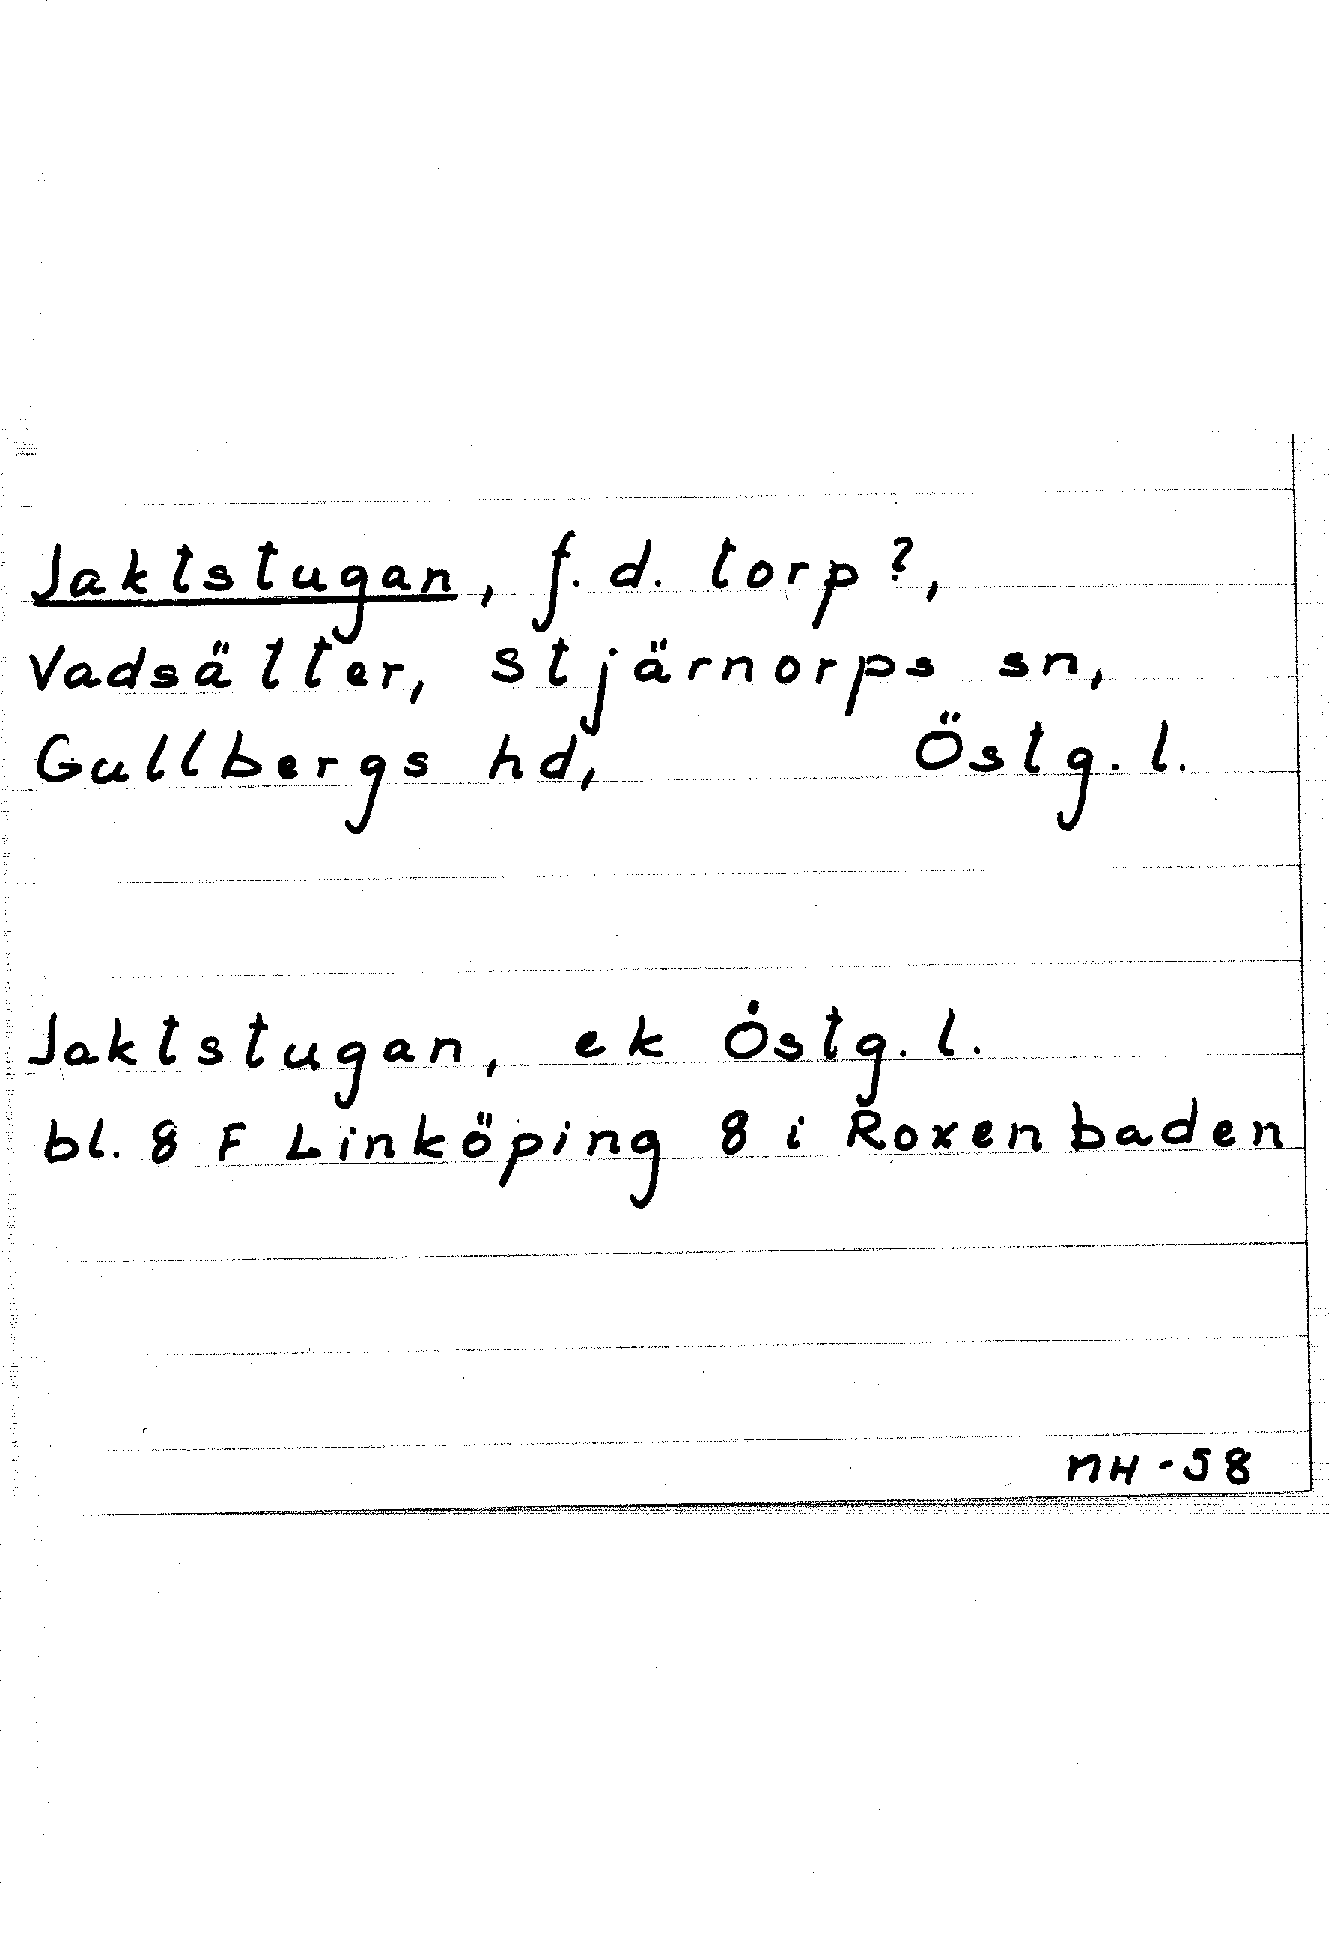 Jaktstugan, f.d. torp?,
Vadsätter, Stjärnorps sn,
Gullbergs hd, Östg.l.
Jaktstugan, ek Östg.l.
bl. 8 F Linköping 8 i Roxenbaden
MH-58